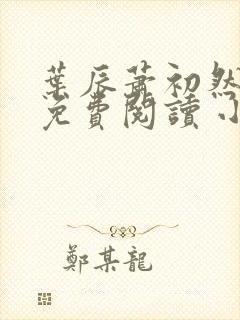 葉辰蕭初然
免費閱讀 小
鄭某龍